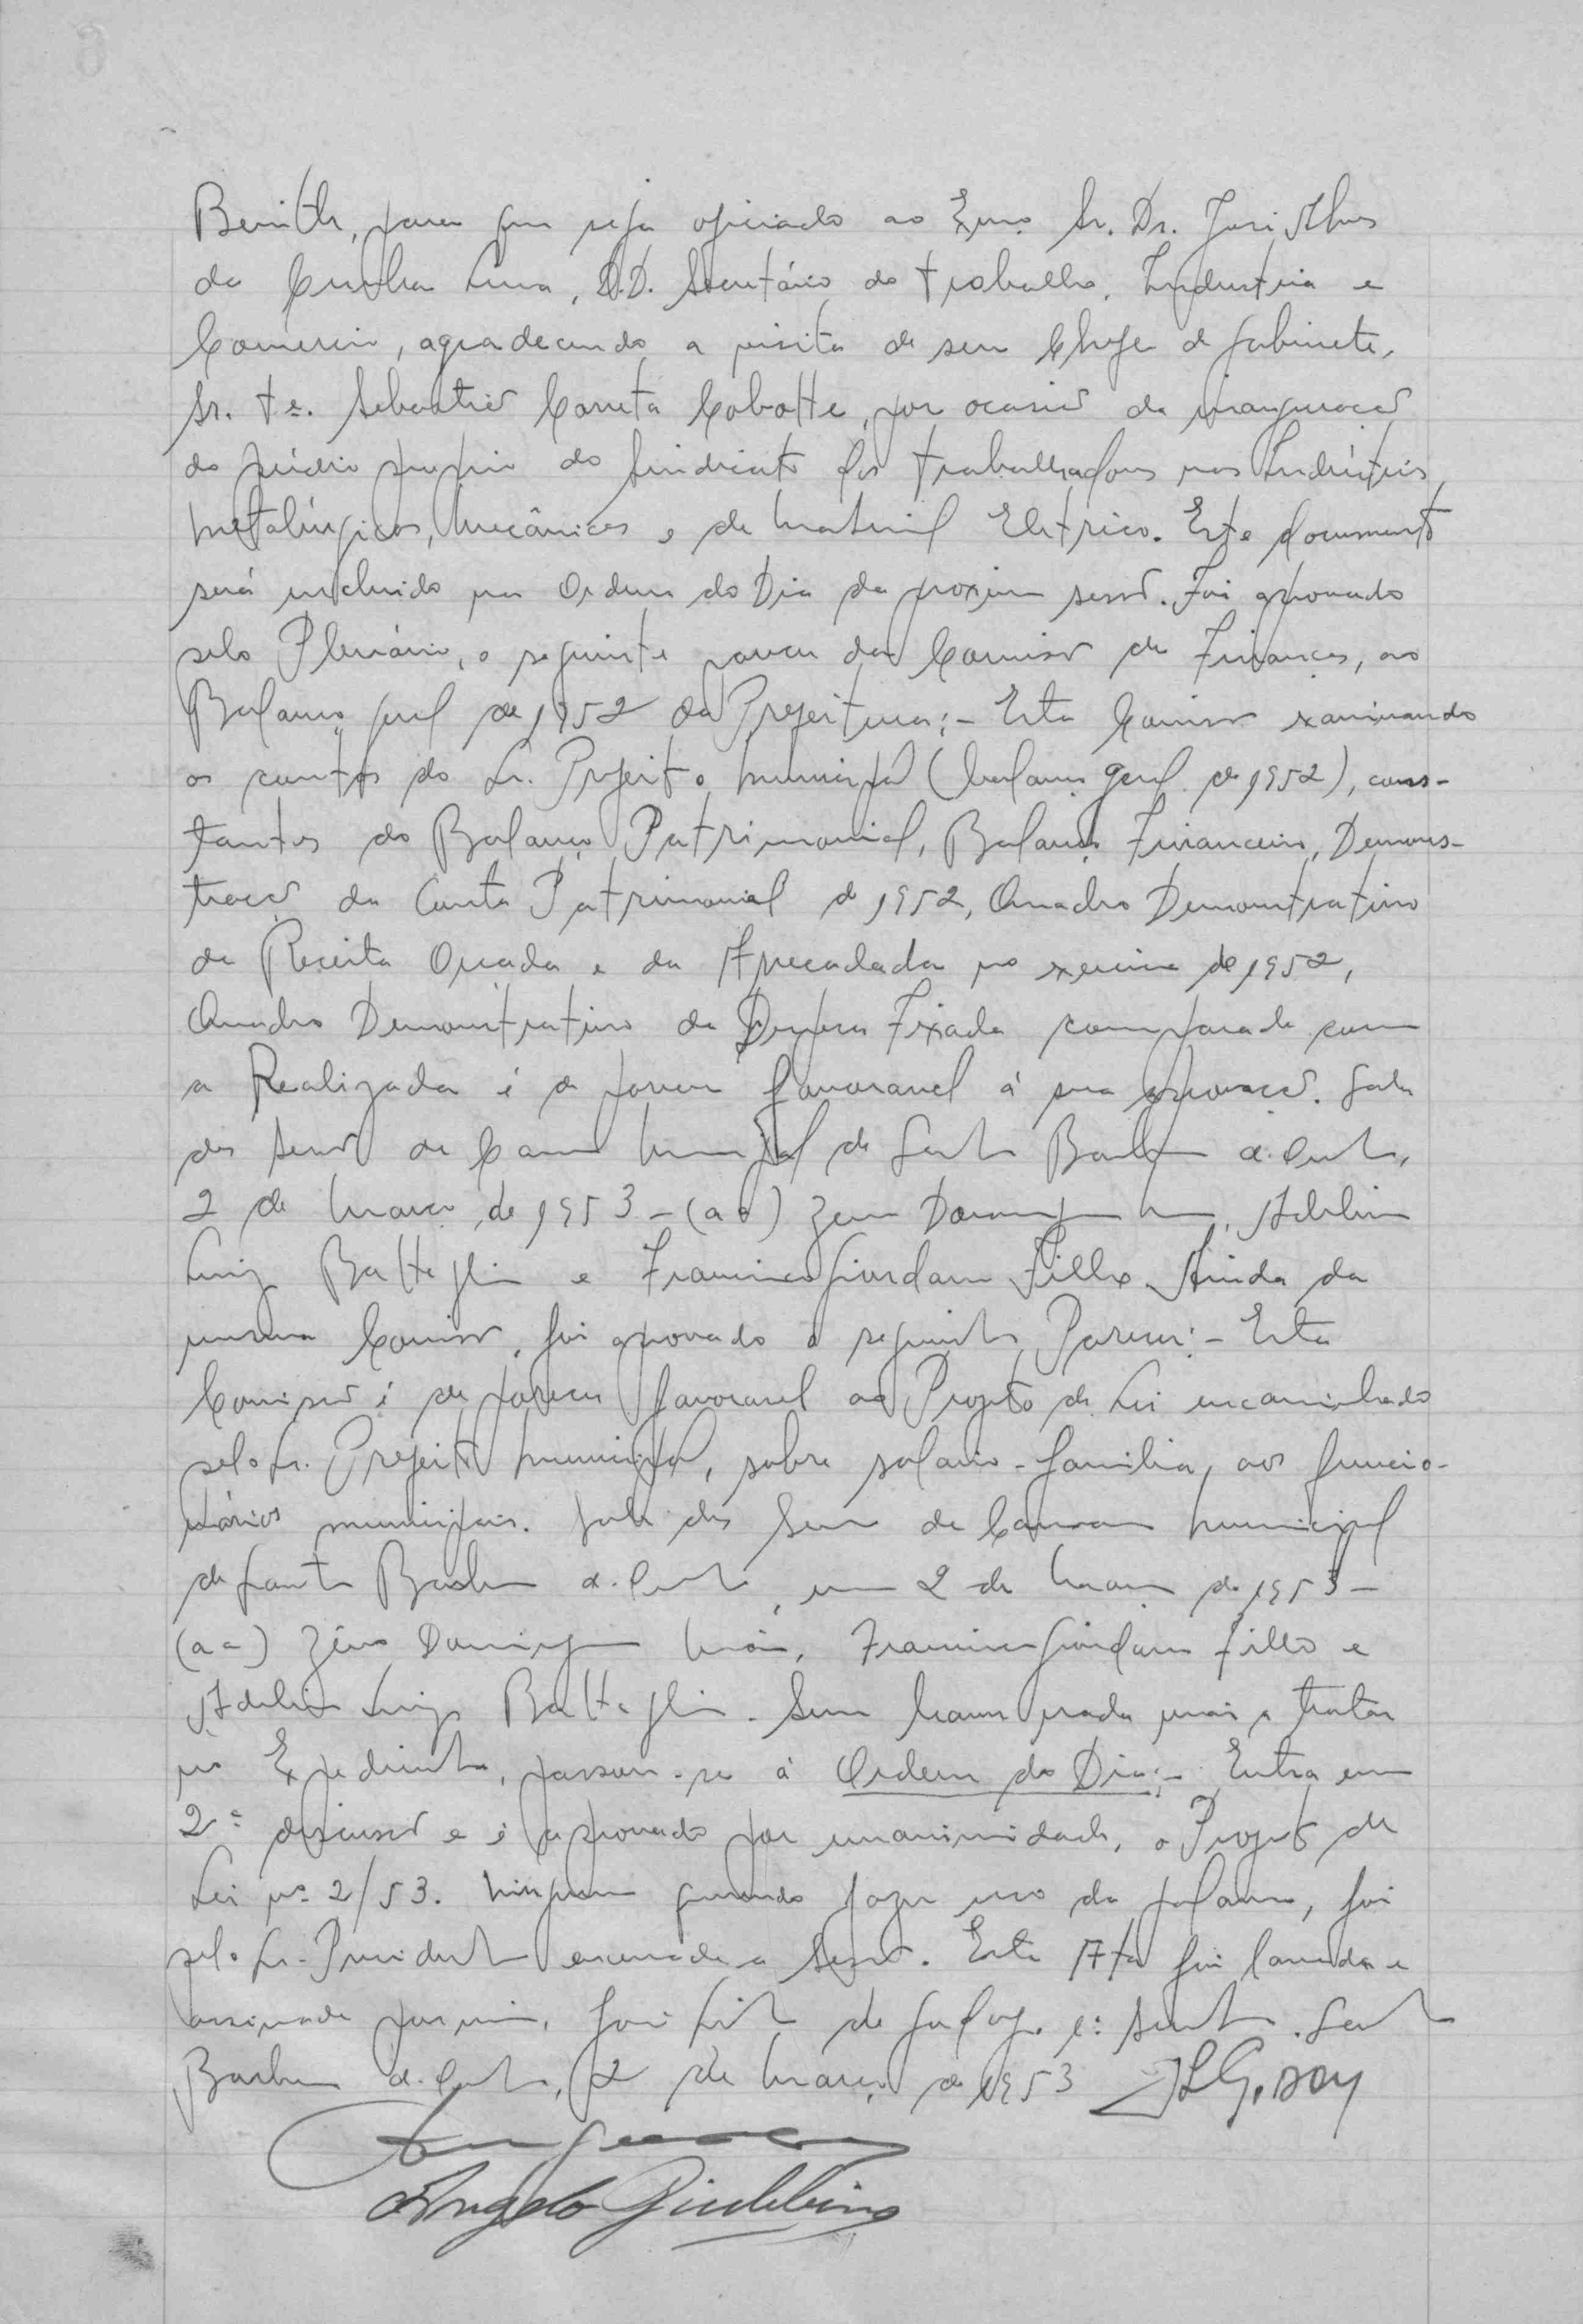 para que seja oficiado ao Exmo Sr. Dr. José Alves
da Cunha Lima, D.D. Secretário do Trabalho, Industria e
Comercio, agradecendo a visita de seu Chefe de Gabinete,
Sr. Te. Sebastião por ocasião da inauguração
do prédio proprio do Sindicato dos Trabalhadores nas Indústrias
Metalúrgicas, Mecânicas e de Material Eletrico. Este documento
será incluido na Ordem do Dia da proxima sessão. Foi aprovado
pelo Plenário, o seguinte parecer da Comissão de Finanças, ao
Balanço geral de 1952 da Prefeitura:- Esta Comissão examinando
as contas do Sr. Prefeito Municipal (balanço geral de 1952), cons-
tantes do Balanço Patrimonial, Balanço Financeiro, Demons-
tração da Conta Patrimonial de 1952, Quadro Demonstrativo
da Receita Orçada e da Arrecadada no exercicio de 1952,
Quadro Demonstrativo da Despesa Fixada comparada com
a Realizada é de parecer favoravel á sua aprovação. Sala
das Sessões da Camara Municipal de Santa Barbara d'Oeste,
2 de Março de 1953 - (aa) Zeno Domingues Maia, Adelino
Luiz Battaglia e Francisco Giordano Filho. Ainda da
mesma Comissão, foi aprovado o seguinte Parecer:- Esta
Comissão é de parecer favoravel ao Projeto de Lei encaminhado
pelo Sr. Prefeito Municipal, sobre salario-familia, aos funcio-
nários municipais. Sala das Sessões da Camara Municipal
de Santa Barbara d'Oeste, em 2 de Março de 1953 -
(aa) Zêno Domingues Maia, Francisco Giordano Filho e
Adelino Luiz Battaglia. Sem haver nada mais a tratar
no Expediente, passou-se á Ordem do Dia:- Entra em
2ª discussão e é aprovado por unanimidade, o Projeto de
Lei nº 2/53. Ninguem querendo fazer uso da palavra, foi
pelo Sr. Presidente encerrada a sessão. Esta Ata foi lavrada e
assinada por mim, José de Godoy, 1º Secretario. Santa
Barbara d'Oeste, 2 de Março de 1953 JLGodoy
Angelo Giubbina